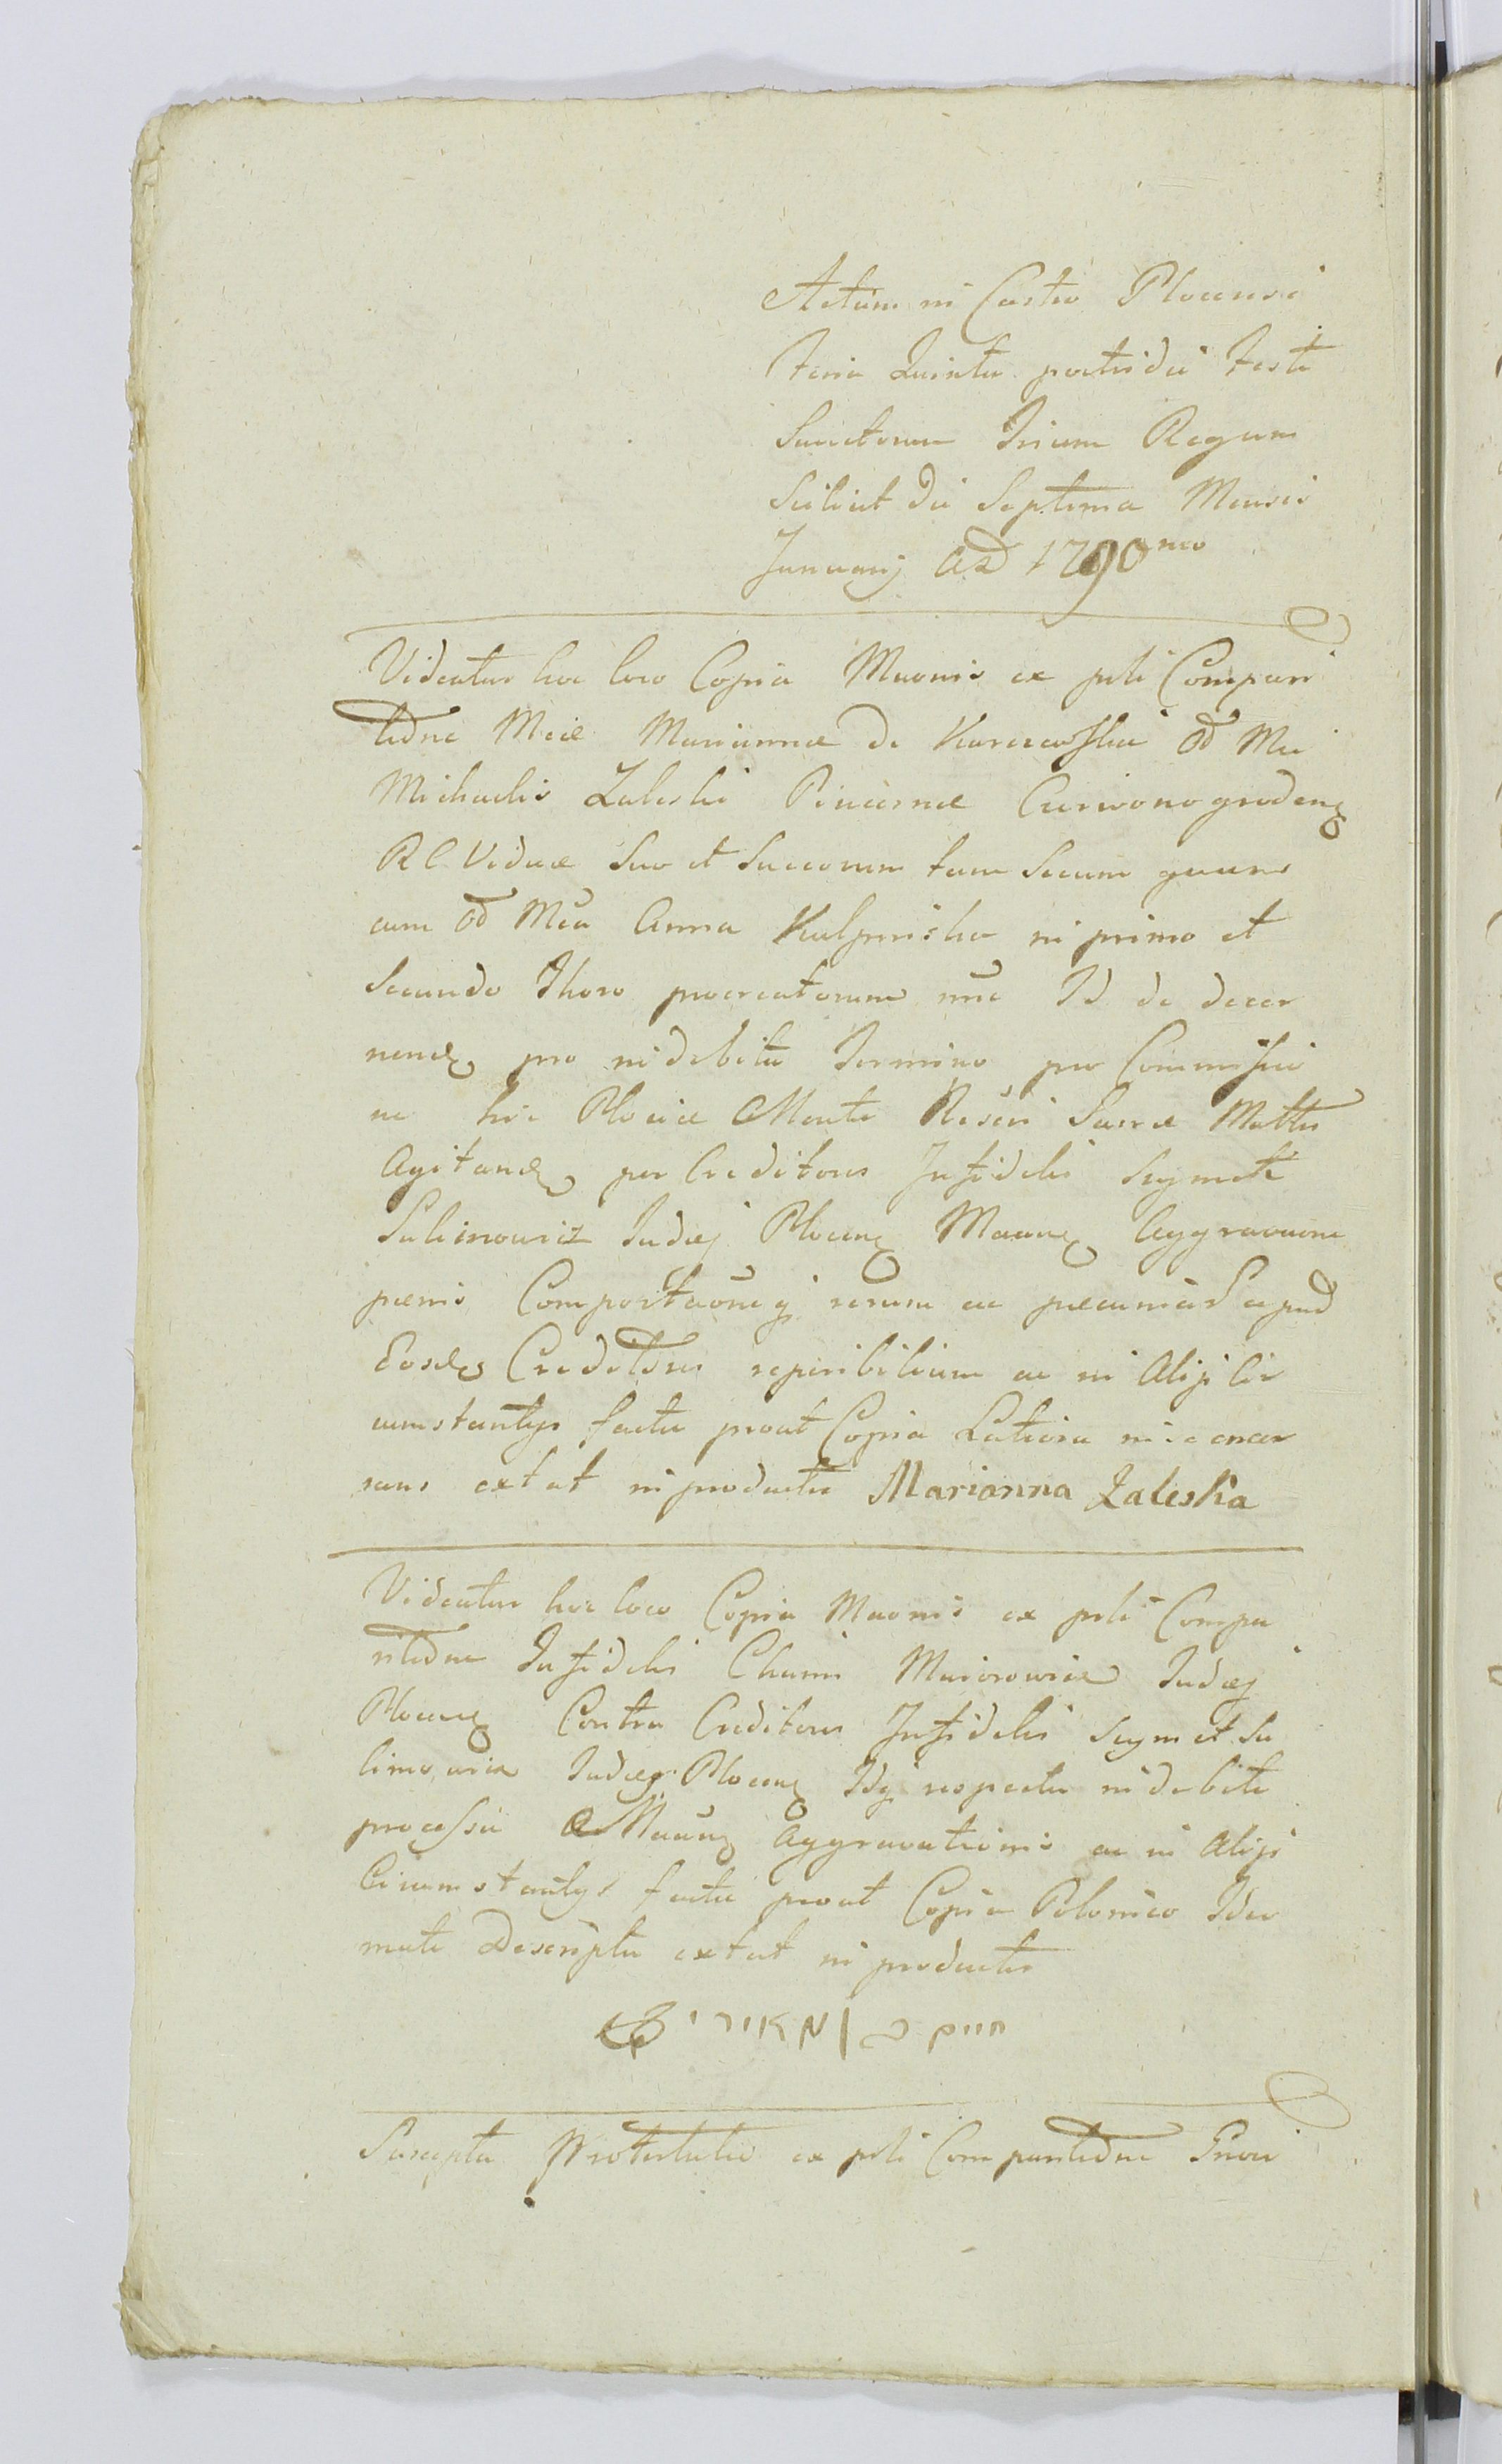 Actum in Castro Plocensi
Feria Quinta postridie Festi
Sanctorum Trium Regum
Scilicet die Septima Mensis
Januarij AD 1790mo
Videatur hoc loco Copia Mnonis ex psti Compari
tione Mcae Mariannae de Karczewskie Od Mci
Michaelis Zaleski Pincernae Czerwonogrodens
R C Viduae suo et succorum tam secum quam
cum Od Mca Anna Kulpinska in primo et
Secundo Thoro procreatorum nne Id de decer
nend pro indebita Termino pro Commissio
ne hic Plociae Monte Resen Sacrae Mattis
Agitand per Creditores Infidelis Szymek
Salimowicz Judaej Plocens Maans Aggravaone
poenis Comportaoneq rerum ac pecuniar apud
Eosdes Creditores reperibilium ac in Alijs Cir
cumstantijs facta prout Copia Latiora in se conser
sans extat in productis Marianna Zaleska
Videatur hoc loco Copia Mnonis ex psti Compa
ritione Infidelis Chaim Maiorowicz Judaej
Plocens Contra Creditores Infidelis Szymek Sa
limowicz Judaej Plocens Idq respectu indebite
processu Maans Aggravationis ac in Alijs
Circumstantijs facta prout Copia Polonico Idio
mate Descripta extat in productis
חיים מאירי
Suscepta Protestatio ex psti Comparitione Gnosi